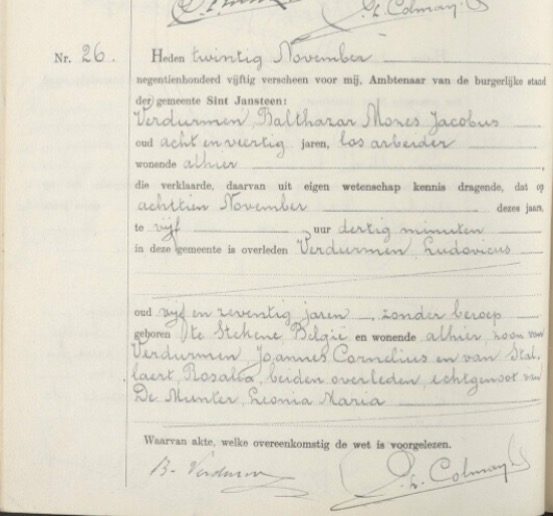 P. L. Colmay
Nr. 26.
Heden twintig November
negentienhonderd vijftig verscheen voor mij, Ambtenaar van de burgerlijke stand
der gemeente Sint Jansteen:
Verdurmen, Balthazar Mozes Jacobus
oud acht en veertig jaren, los arbeider
wonende alhier
die verklaarde, daarvan uit eigen wetenschap kennis dragende, dat op
achttien November dezes jaars,
te vijf uur dertig minuten
in deze gemeente is overleden Verdurmen, Ludovicus
oud vijf en zeventig jaren, zonder beroep
geboren te Stekene, België en wonende alhier, zoon van
Verdurmen, Joannes Cornelius en van Stal-
laert, Rosalia, beiden overleden, echtgenoot van
De Munter, Leonia Maria
Waarvan akte, welke overeenkomstig de wet is voorgelezen.
B. Verdurm
P. L. Colmay